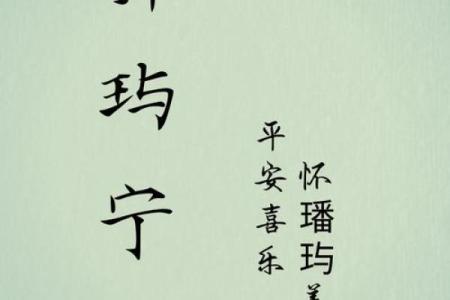 玙宁
怀璠玙
平安喜乐